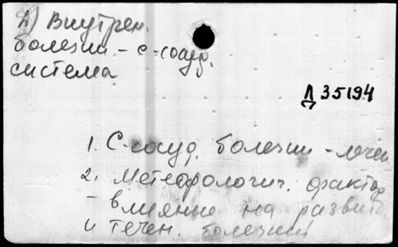 Д) Внутрен.
болезни - с-сосуд.
система
Д 35194
1. С-сосуд. болезни - лечен
2. Метеорологич. фактор
- влияние на развит
и течен. болезни